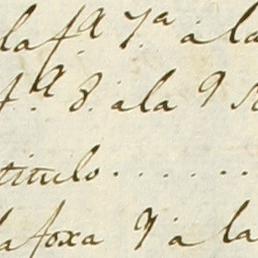 la f.ª 7.ª a la
f.ª 8. a la 9
titulo . . . . . .
la foxa 9 a la